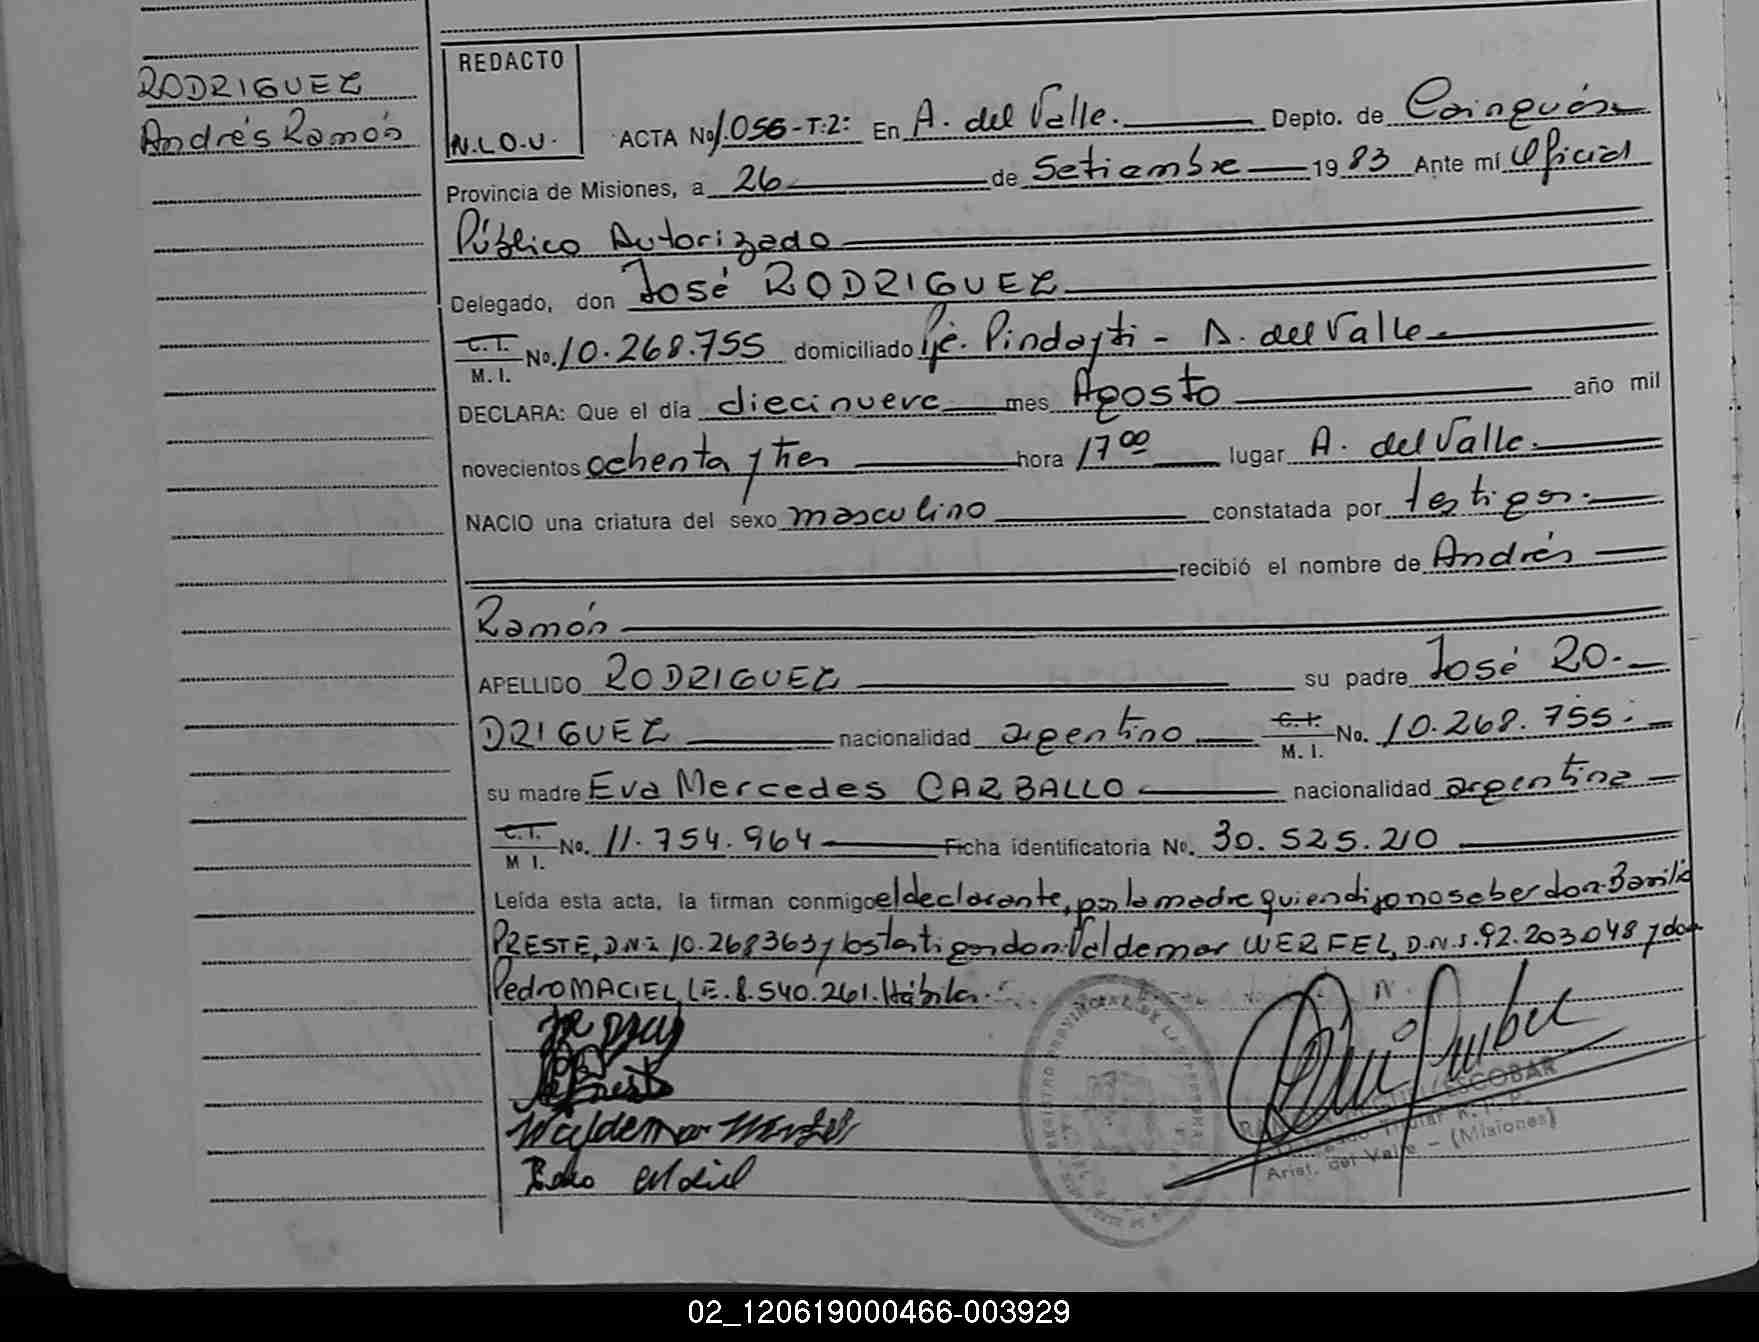 RODRIGUEZ
Andrés Ramón
REDACTO
N.L.O.V.
ACTA No 1.056-T:2: En A. del Valle. Depto. de Cainguás
Provincia de Misiones, a 26 de Setiembre 1983 Ante mí Oficial
Público Autorizado
Delegado, don José RODRIGUEZ
C.I. M. I. No. 10.268.755 domiciliado Pje. Pindayti - A. del Valle
DECLARA: Que el día diecinueve mes Agosto año mil
novecientos ochenta y tres hora 17 00 lugar A. del Valle.
NACIO una criatura del sexo masculino constatada por testigos.
recibió el nombre de Andrés
Ramón
APELLIDO RODRIGUEZ su padre José RO.
DRIGUEZ nacionalidad argentino C.I. M. I. No. 10.268.755.
su madre Eva Mercedes CARBALLO nacionalidad argentina
C.I. M I. No. 11.754.964 Ficha identificatoria No. 30.525.210
Leída esta acta, la firman conmigo el declarante, por la madre quien dijo no saber don Basilio
PRESTE, DNI 10.268363 y los testigos don Valdemar WERFEL, D.N.I. 92.203.048 y don
Pedro MACIEL, L.E. 8.540.261. Hábiles.
Waldemar Werfel
Pedro Maciel
REGISTRO PROVINCIAL DE LAS PERSONAS
ESCOBAR
Titular R. P. P.
Arist. del Valle - (Misiones)
02_120619000466-003929